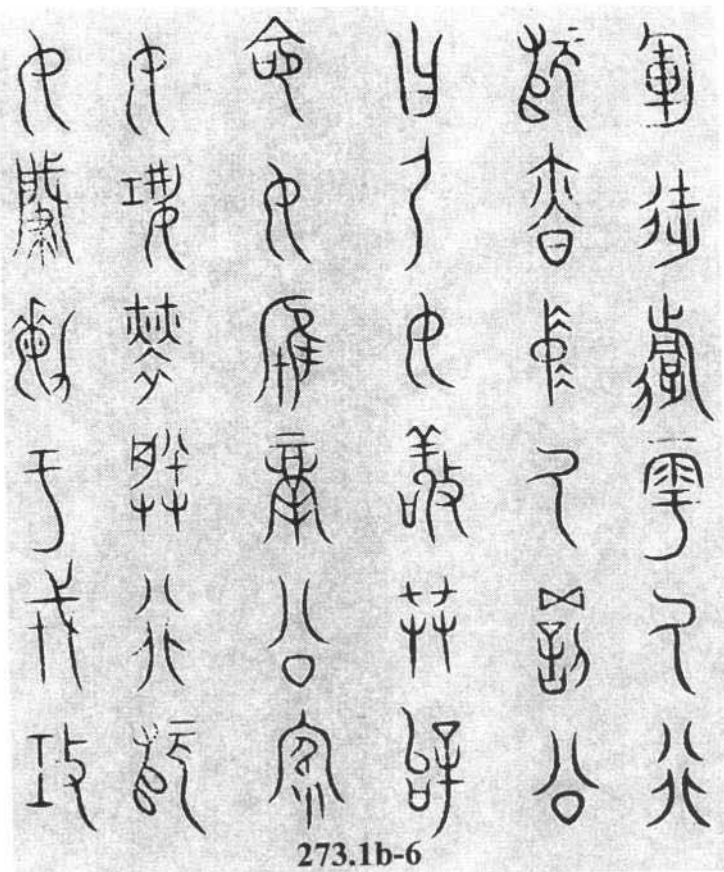 軍徒𨖍雩厥行
師慎中厥罰公
曰尸女敬共辝
命女雁鬲公家
女巩勞朕行師
女肇敏于戎攻
273.1b-6